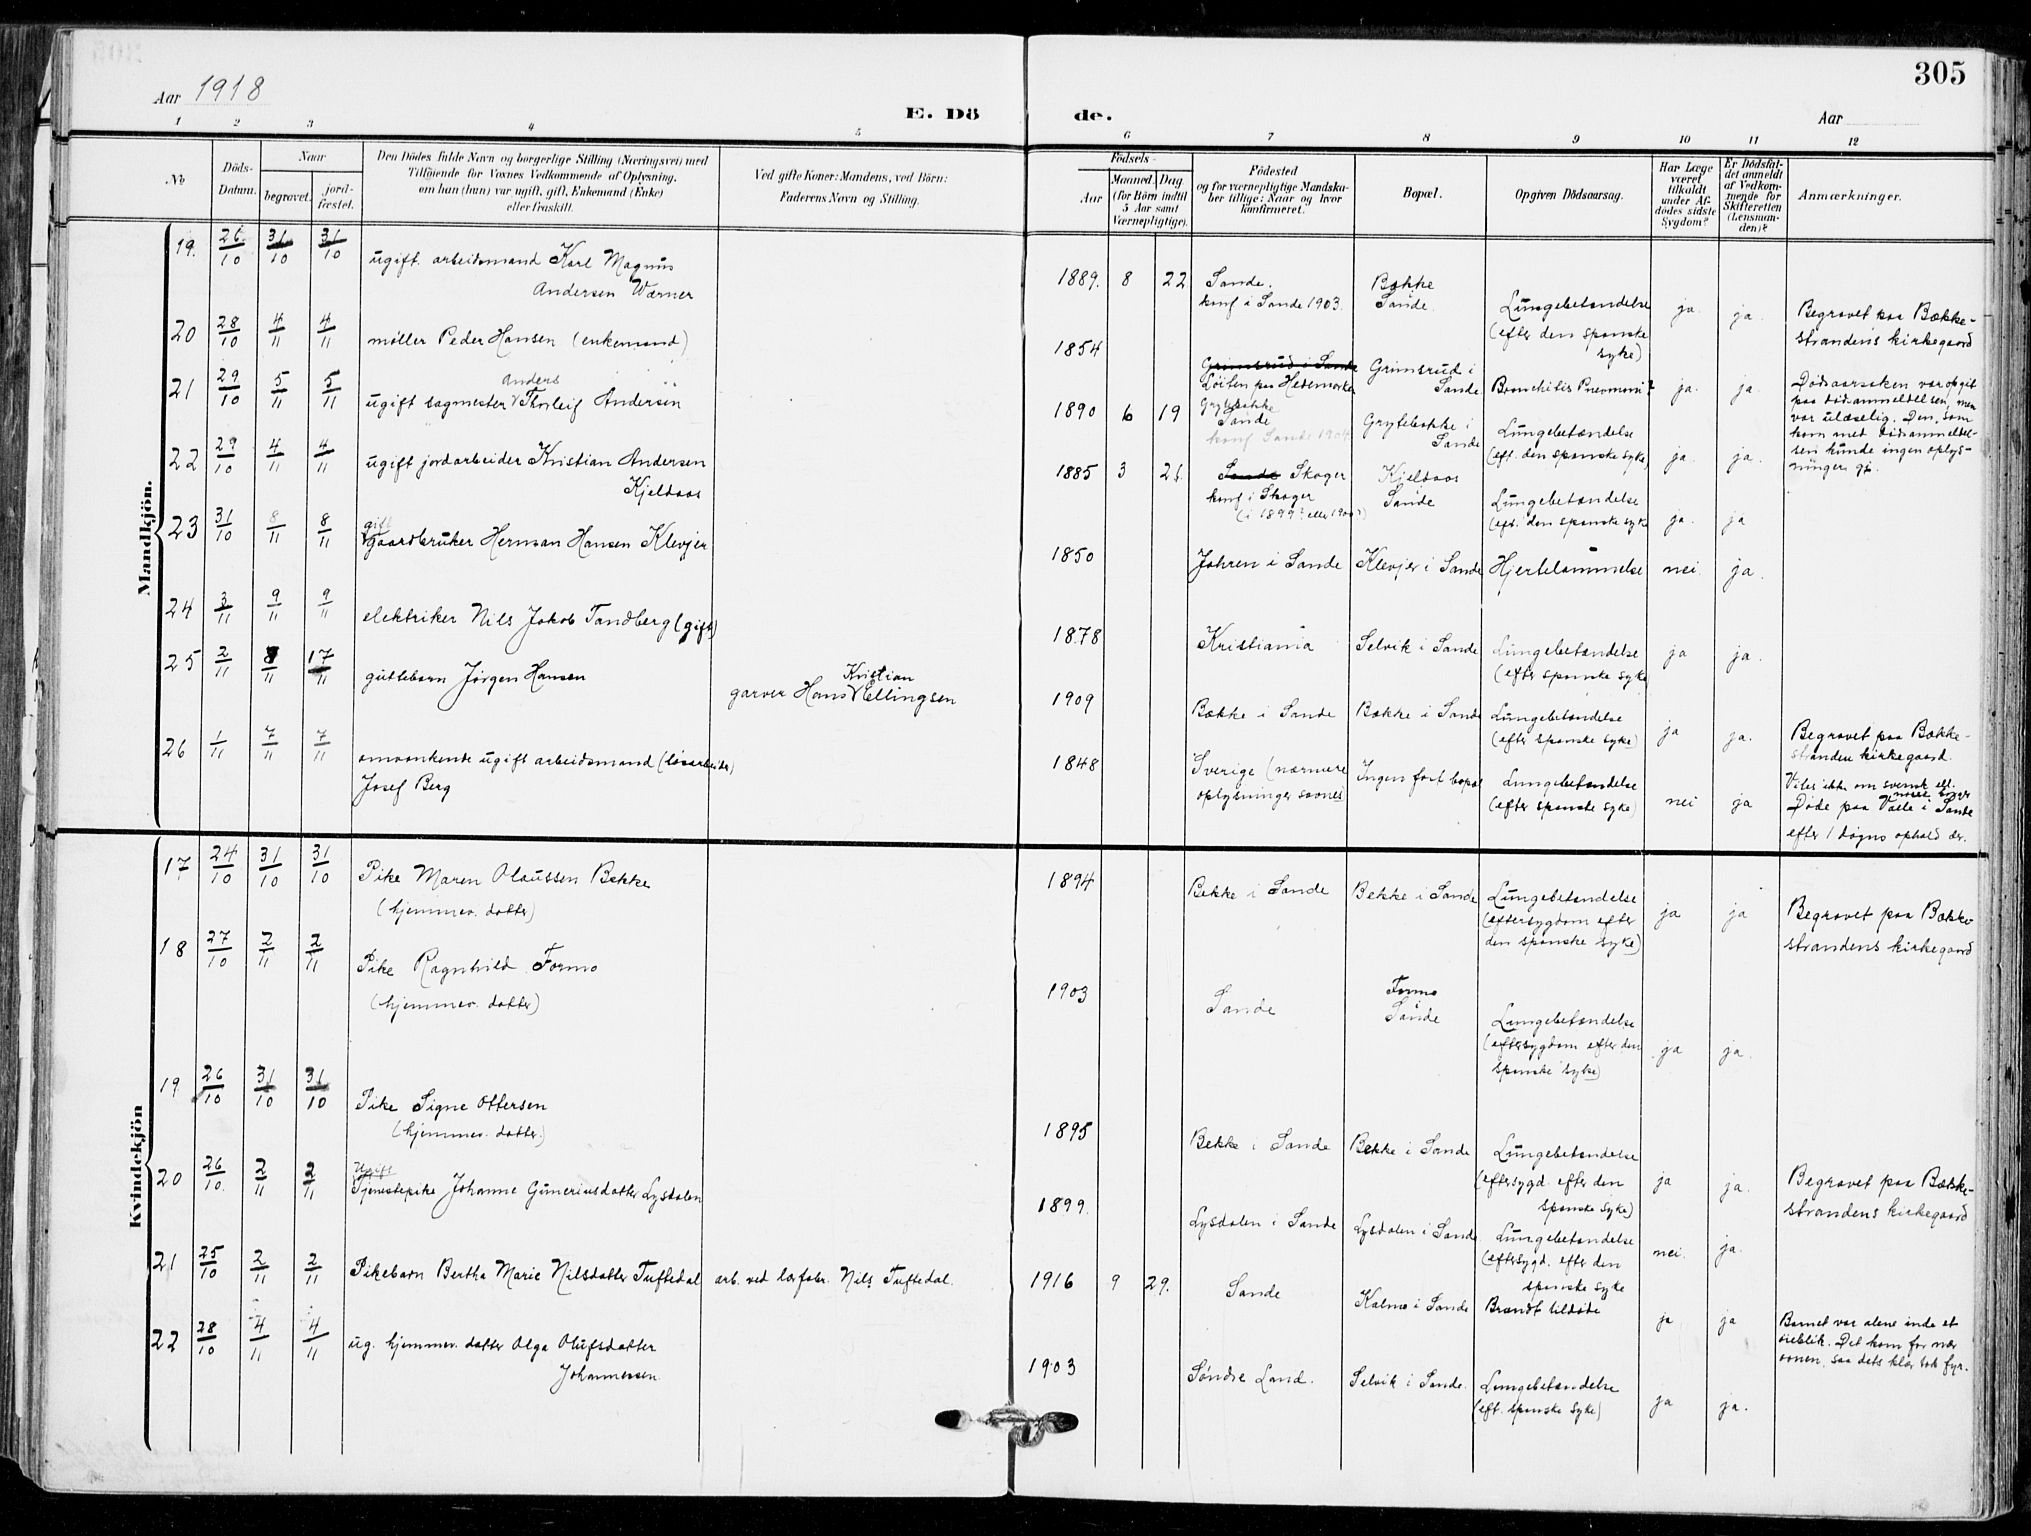 305
Aar 1918
E. Dö
de.
Aar
1 2 3 4 5 6 7 8 9 10 11 12
No
Döds-Datum.
Naar
begravet.
jord-fæstet.
Den Dödes fulde Navn og borgerlige Stilling (Næringsvei) med
Tilföiende for Voxnes Vedkommende af Oplysning,
om han (hun) var ugift, gift, Enkemand (Enke)
eller fraskilt.
Ved gifte Koner: Mandens, ved Börn:
Faderens Navn og Stilling.
Födsels-
Aar
Maaned. Dag.
(for Börn indtil
5 Aar samt
Værnepligtige).
Födested
og for værnepligtige Mandska-
ber tillige: Naar og hvor
konfirmeret.
Bopæl.
Opgiven Dödsaarsag.
Har Læge
været
tilkaldt
under Af-
dödes sidste
Sygdom?
Er Dödsfal-
det anmeldt
af Vedkom-
mende for
Skifteretten
(Lensman-
den)?
Anmærkninger.
Mandkjön.
19. 26/10 31/10 31/10 ugift. arbeidsmand Karl Magnus
Andersen Wærner
1889. 8 22 Sande.
konf i Sande 1903.
Bække
Sande.
Lungebetændelse
(efter den spanske
syke)
ja. ja.
Begravet paa Bække-
strandens kirkegaard
20 28/10 4/11 4/11 møller Peder Hansen (enkemand)
1854
Grimsrud i Sande
Löiten paa Hedemarken
Grimsrud i
Sande
Bronchitis Pneumoni?
ja. ja.
Dødsaarsaken var opgit
paa dødsanmeldelsen, men
var ulæselig. Den, som
kom med dødsanmeldel-
sen kunde ingen oplys-
ninger gi.
21 29/10 5/11 5/11 ugift sagmester Anders Thorleif Andersen
1890 6 19 Grytebække
Sande
konf Sande 1904.
Grytebække i
Sande
Lungebetændelse
(eft. den spanske syke)
ja. ja.
22 29/10 4/11 4/11 ugift jordarbeider Kristian Andersen
Kjeldaas
1885 3 Sande Skoger
konf i Skoger
(i 1899? eller 1900?)
Kjeldaas
Sande
Lungebetændelse
(eft. den spanske syke
ja. ja
23 31/10 8/11 8/11 gift
gaardbruker Herman Hansen Klevjer
1850 Johren i Sande Klevjer i Sande Hjertelammelse nei. ja.
24 3/11 9/11 9/11 elektriker Nils Jakob Tandberg (gift)
1878 Kristiania Selvik i Sande Lungebetændelse
(efter spanske syke
ja ja.
25 2/11 8/11 17/11 guttebarn Jørgen Hansen
garver Hans Kristian Ellingsen
1909 Bække i Sande Bække i Sande Lungebetændelse
(efter spanske syke)
ja ja.
Begravet paa Bække-
stranden kirkegaard.
26 1/11 7/11 7/11 omvankende ugift arbeidsmand (løsarbeider)
Josef Berg
1848 Sverige (nærmere
oplysninger savnes)
Ingen fast bopæl
Lungebetændelse
(efter spanske syke)
nei ja
Vites ikke om svensk ell.
norsk borger
Døde paa Valle i Sande
efter 1 døgns ophold der.
Kvindekjön
17 24/10 31/10 31/10 Pike Maren Olaussen Bekke
(hjemmev. datter)
1894 Bekke i Sande Bekke i Sande Lungebetændelse
(eftersygdom efter
den spanske syke)
ja ja
Begravet paa Bække-
strandens kirkegaard
18 27/10 2/11 2/11 Pike Ragnhild Formo
(hjemmev. datter)
1903 Sande Formo
i
Sande
Lungebetændelse
(eftersygdom efter den
spanske syke)
ja ja.
19. 26/10 31/10 31/10 Pike Signe Ottersen
(hjemmev. datter.)
1895 Bekke i Sande Bekke i Sande Lungebetændelse
(eftersygd. efter den
spanske syke)
ja ja.
Begravet paa Bække-
strandens kirkegaard
20 26/10 2/11 2/11 Ugift
Tjenestepike Johanne Guneriusdatter Lysdalen
1899. Lysdalen i Sande Lysdalen i Sande Lungebetændelse
(eftersygd. efter den
spanske syke
nei. ja.
21 25/10 2/11 2/11 Pikebarn Bertha Marie Nilsdatter Tuftedal arb. ved lærfabr. Nils Tuftedal.
1916 9 29. Sande Kalmo i Sande Brændt tildøde ja ja
Barnet var alene inde et
øieblik. Det kom for nær
ovnen, saa dets klær tok fyr.
22 28/10 4/11 4/11 ug. hjemmev. datter Olga Olufsdatter
Johannessen.
1903 Søndre Land. Selvik i Sande. Lungebetændelse
(eft. spanske syke)
ja ja.